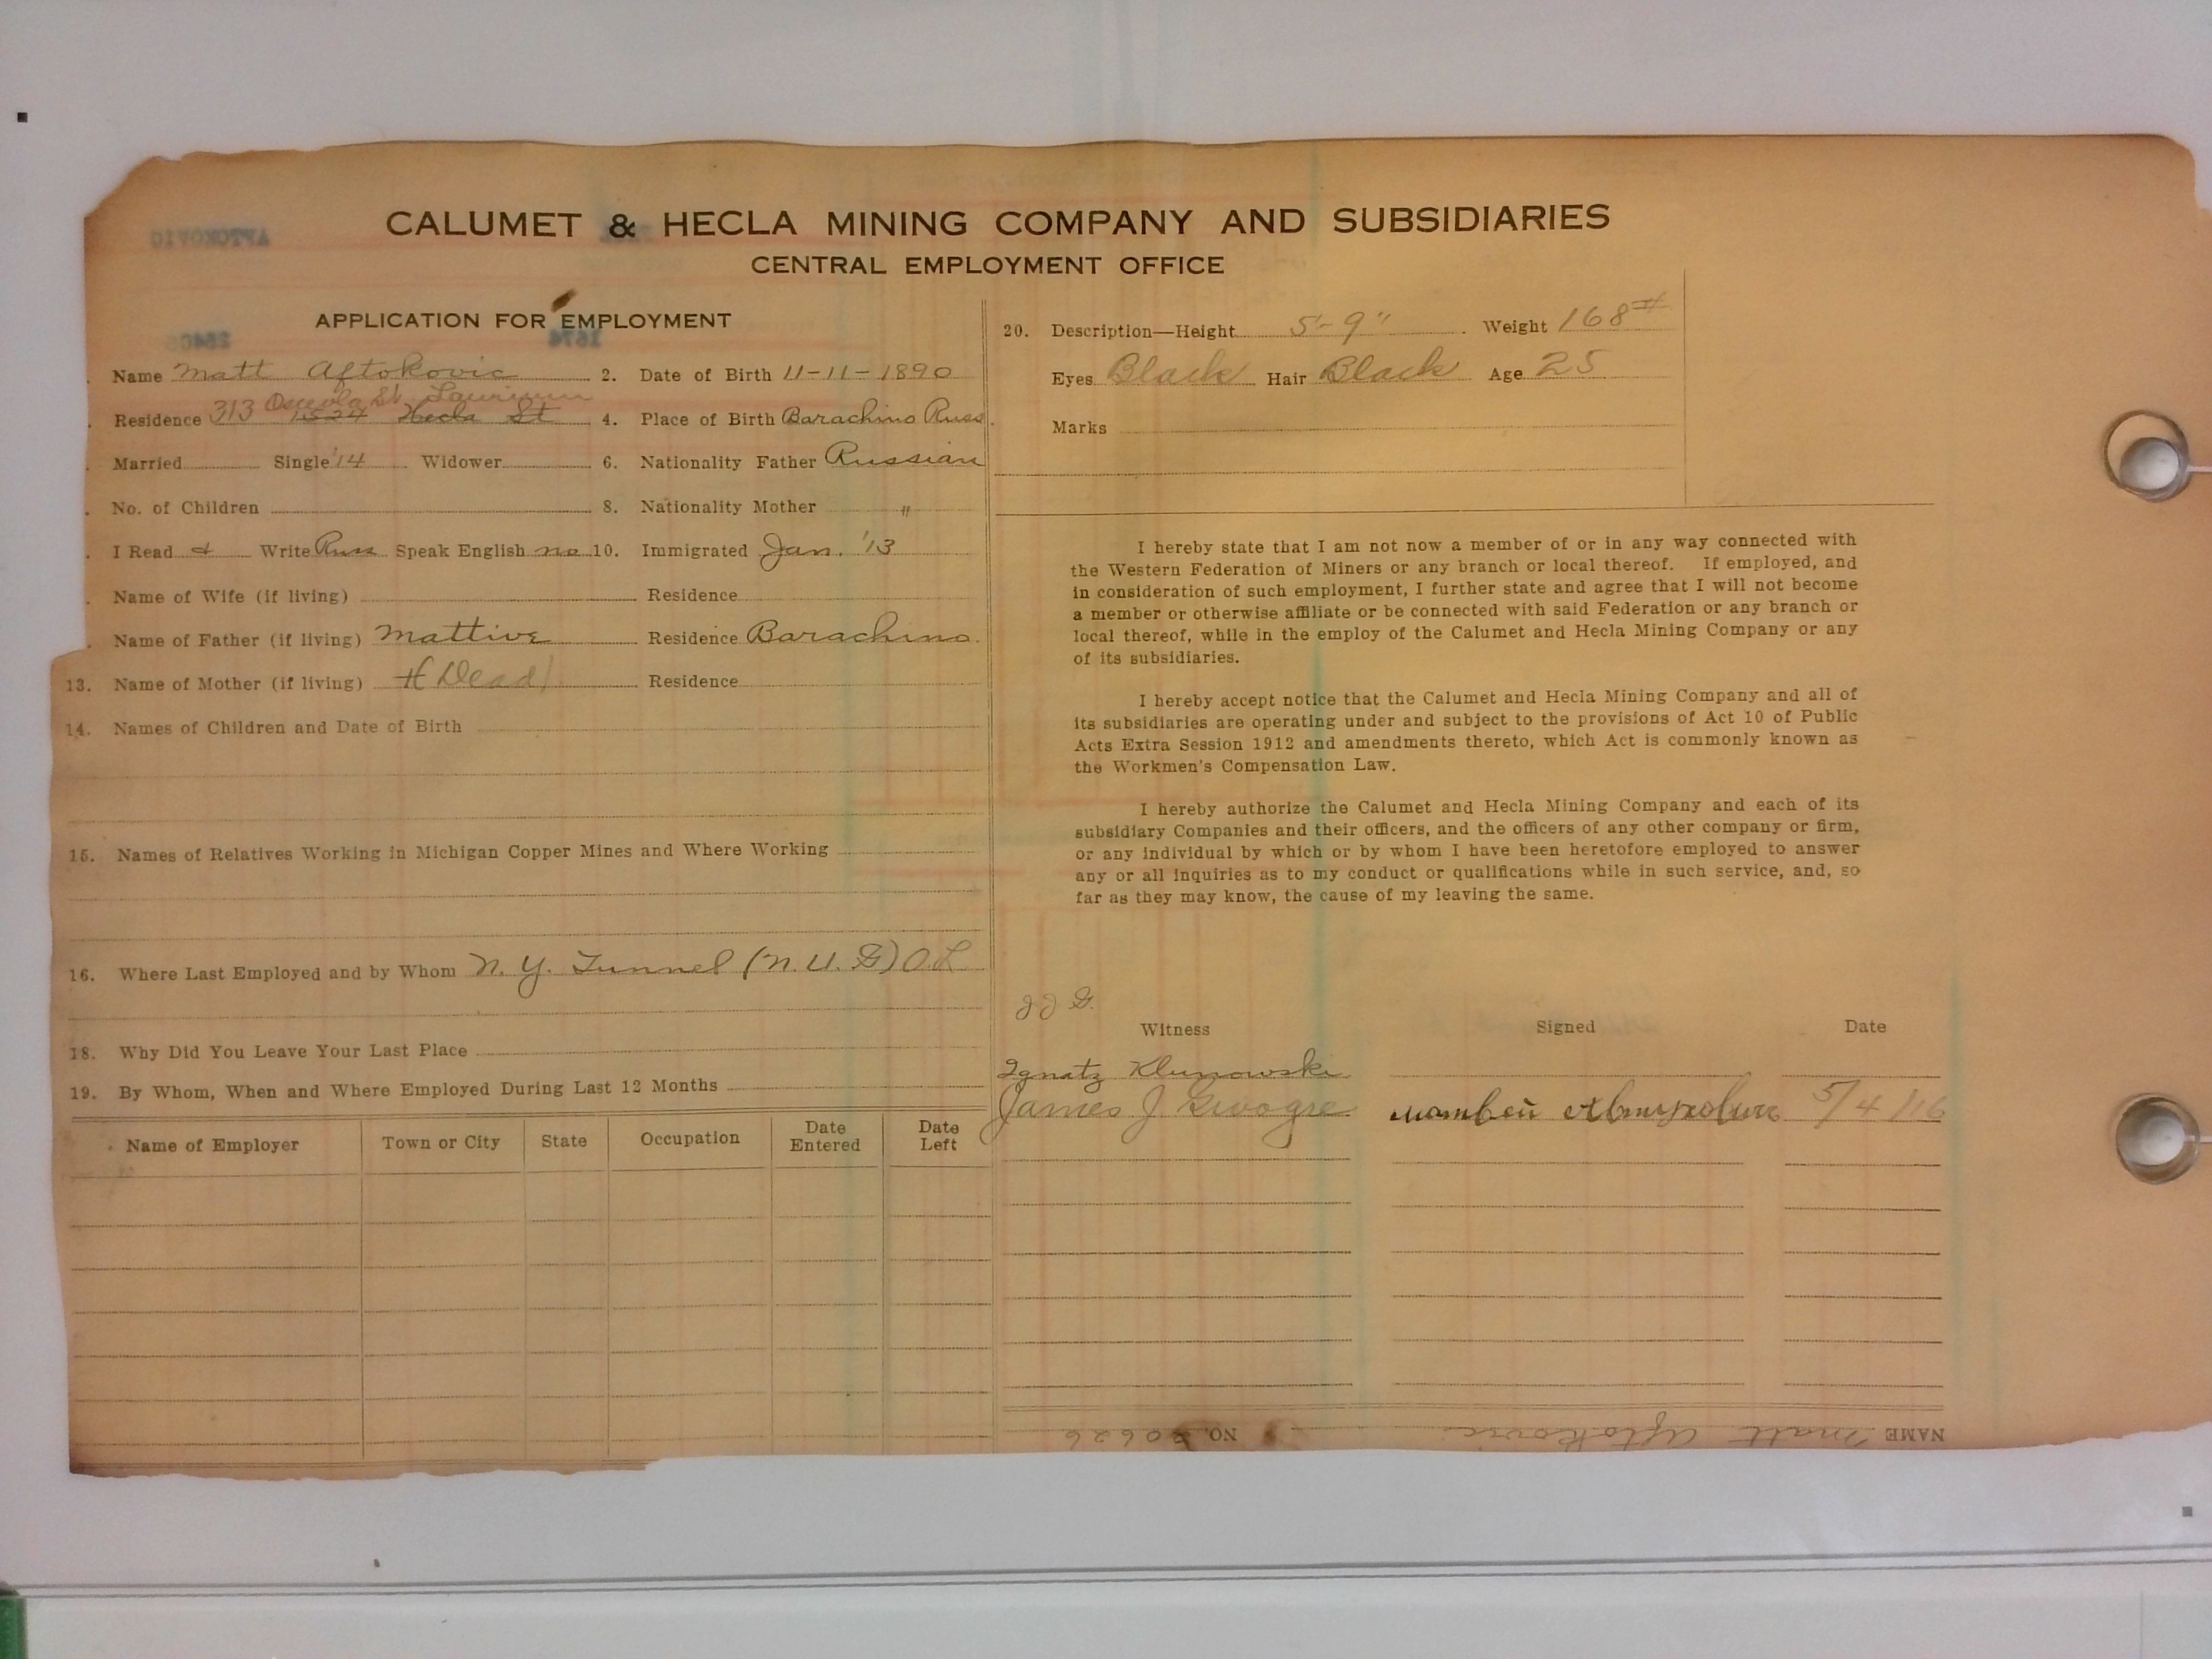 CALUMET & HECLA MINING COMPANY AND SUBSIDIARIES
CENTRAL EMPLOYMENT OFFICE
APPLICATION FOR EMPLOYMENT
Name Matt Aftokovic 2. Date of Birth 11-11-1890
313 Osceola St. Laurium
Residence 1524 Hecla St 4. Place of Birth Barachino Russ.
Married Single '14 Widower 6. Nationality Father Russian
No. of Children 8. Nationality Mother "
I Read & Write Russ Speak English no 10. Immigrated Jan. '13
Name of Wife (if living) Residence
Name of Father (if living) Mattive Residence Barachino.
13. Name of Mother (if living) (Dead) Residence
14. Names of Children and Date of Birth
15. Names of Relatives Working in Michigan Copper Mines and Where Working
16. Where Last Employed and by Whom N. Y. Tunnel (N. U. G) O.L
18. Why Did You Leave Your Last Place
19. By Whom, When and Where Employed During Last 12 Months
Name of Employer Town or City State Occupation Date Entered Date Left
20. Description—Height 5'-9" Weight 168#
Eyes Black Hair Black Age 25
Marks
I hereby state that I am not now a member of or in any way connected with
the Western Federation of Miners or any branch or local thereof. If employed, and
in consideration of such employment, I further state and agree that I will not become
a member or otherwise affiliate or be connected with said Federation or any branch or
local thereof, while in the employ of the Calumet and Hecla Mining Company or any
of its subsidiaries.
I hereby accept notice that the Calumet and Hecla Mining Company and all of
its subsidiaries are operating under and subject to the provisions of Act 10 of Public
Acts Extra Session 1912 and amendments thereto, which Act is commonly known as
the Workmen's Compensation Law.
I hereby authorize the Calumet and Hecla Mining Company and each of its
subsidiary Companies and their officers, and the officers of any other company or firm,
or any individual by which or by whom I have been heretofore employed to answer
any or all inquiries as to my conduct or qualifications while in such service, and, so
far as they may know, the cause of my leaving the same.
Witness Signed Date
Ignatz Klunowski
James J. 5/4/16
NAME Matt Aftokovic NO. 20626